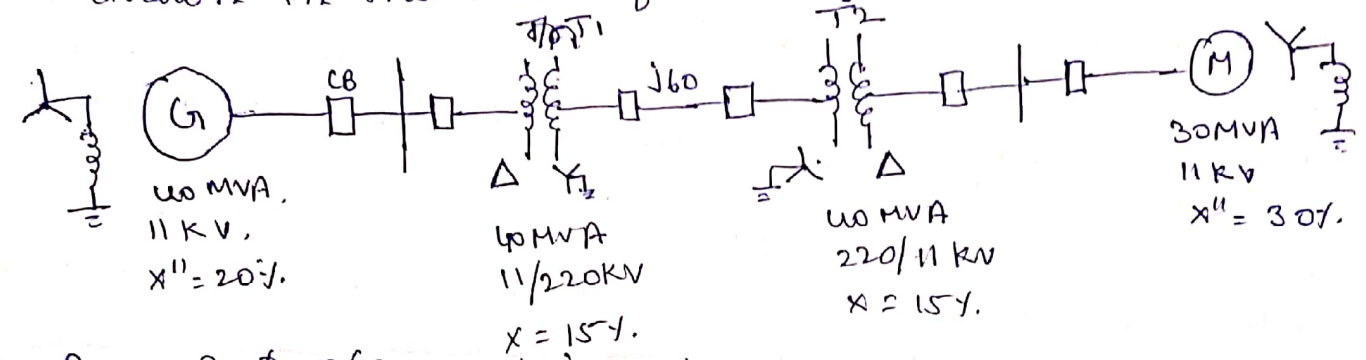 T/F T1
T2
CB
j60
G
M
40 MVA,
11 KV,
X" = 20%.
Δ
40 MVA
11/220KV
X = 15%.
Δ
40 MVA
220/11 KV
X = 15%.
30MVA
11 KV
X" = 30%.